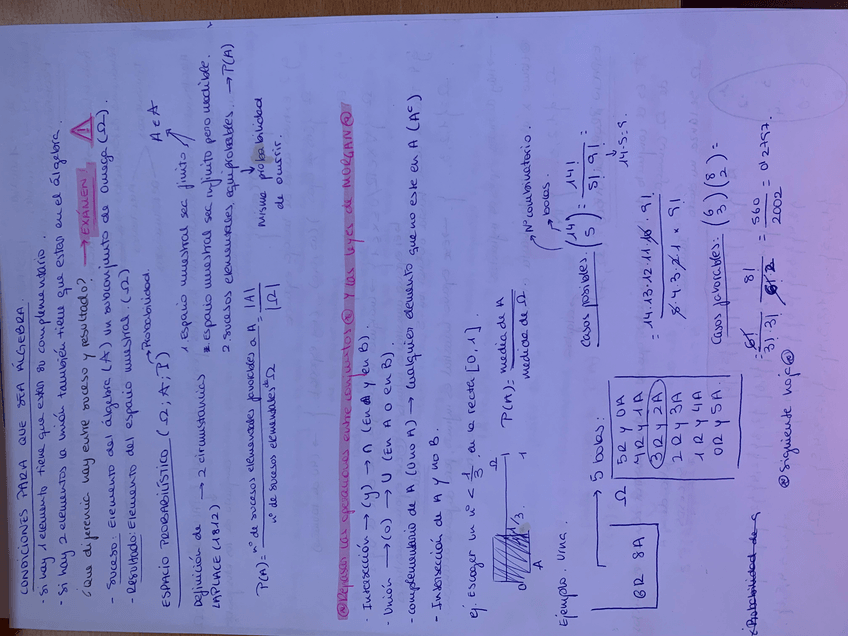 CONDICIONES PARA QUE SEA ÁLGEBRA.
- Si hay 1 elemento tiene que estar su complementario.
- Si hay 2 elementos la unión también tiene que estar en el álgebra.
¿Que diferencia hay entre suceso y resultado? → EXÁMEN
- Suceso: Elemento del álgebra (A) Un subconjunto de Omega (Ω).
- Resultado: Elemento del espacio muestral. (Ω)
ESPACIO PROBABILÍSTICO (Ω, A, P) → Probabilidad. A ∈ A
Definición de LAPLACE (1812) → 2 circunstancias
1 Espacio muestral sea finito
2 Espacio muestral sea infinito pero medible.
2 Sucesos elementales, equiprobables. → P(A)
misma probabilidad de ocurrir.
P(A) = nº de sucesos elementales favorables a A / nº de sucesos elementales de Ω = |A| / |Ω|
Repasar las operaciones entre conjuntos y las leyes de MORGAN
- Intersección → (y) → ∩ (En A y en B).
- Unión → (o) → U (En A o en B).
- Complementario de A (O no A) → Cualquier elemento que no este en A (Aᶜ)
- Intersección de A y no B.
ej. Escoger un nº < 1/3 de la recta [0, 1].
Ω
0 1/3 1
A
P(A) = medida de A / medida de Ω
Ejemplo. Urna.
6R 8A
→ 5 bolas:
Ω
5R y 0A
4R y 1A
3R y 2A
2R y 3A
1R y 4A
0R y 5A.
Nº combinatorio.
bolas.
Casos posibles: (14 5) = 14! / 5! 9! =
14-5=9.
= 14·13·12·11·10·9! / 5·4·3·2·1 × 9!
Casos favorables: (6 3) (8 2) =
= 6! / 3! 3! 8! / 6! 2 = 560 / 2002 = 0'2797.
Probabilidad de
Siguiente hoja